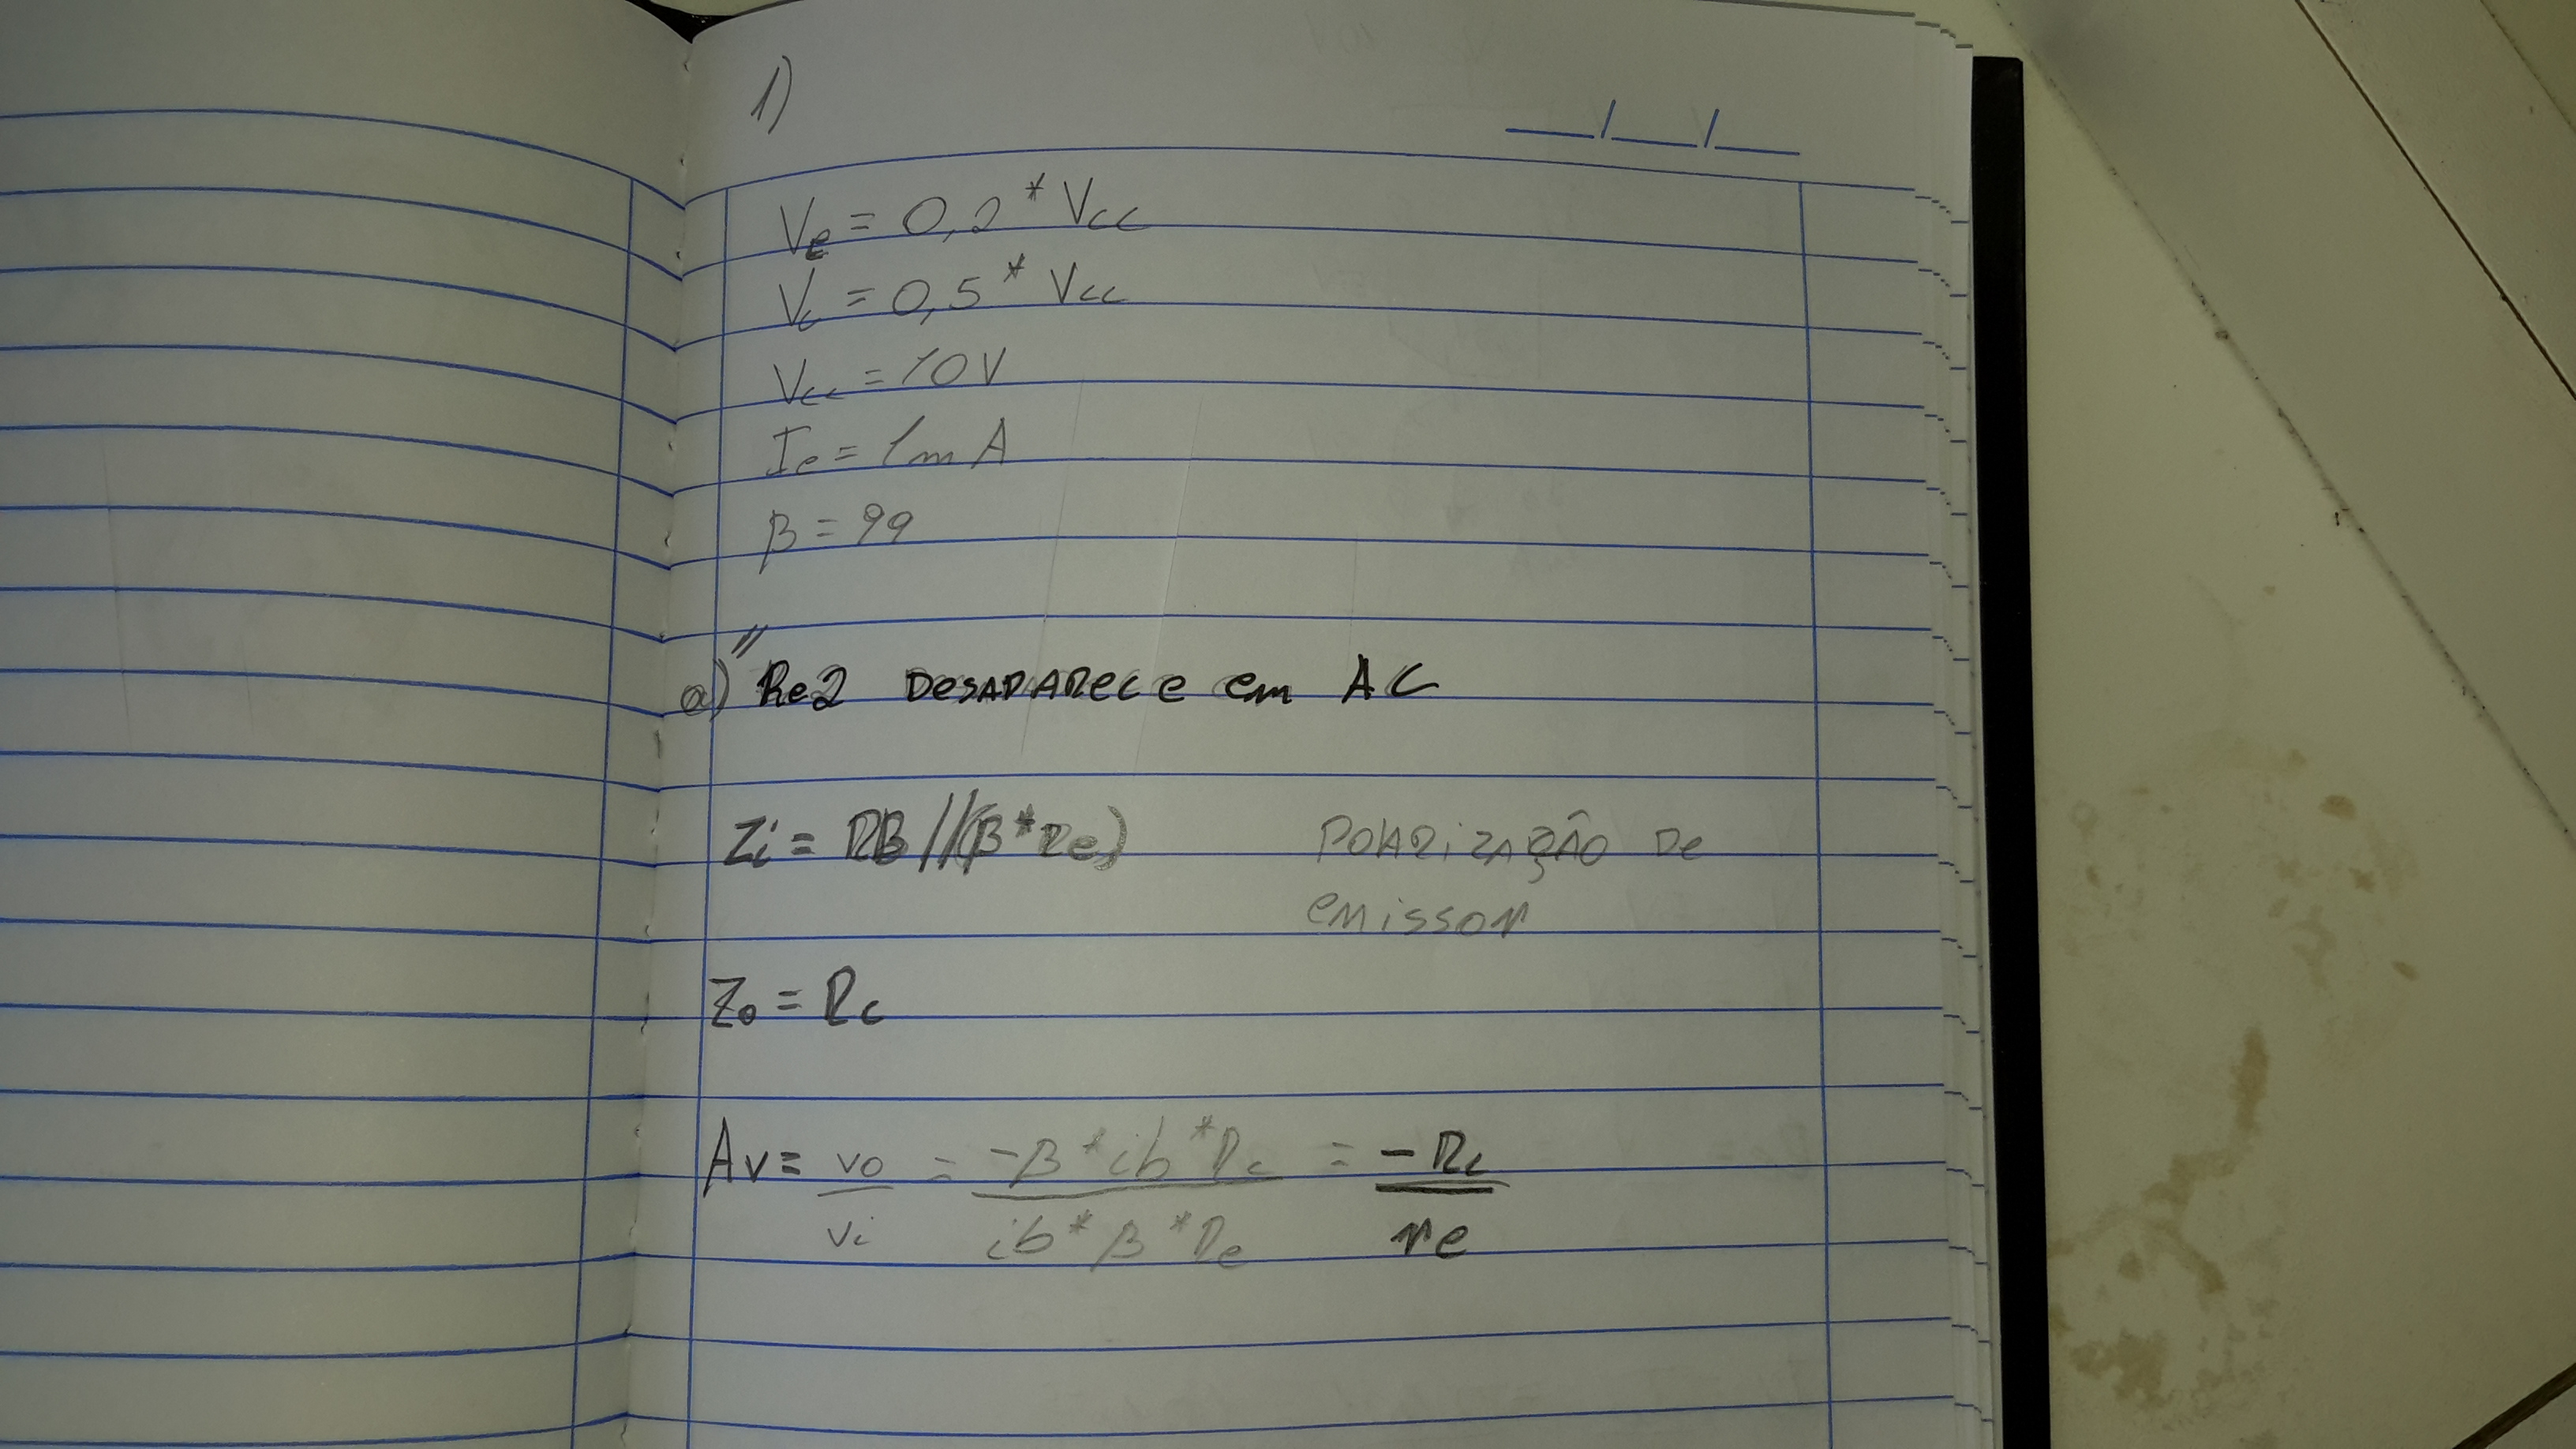 1)
__/__/__
Ve = 0,2 * Vcc
Vc = 0,5 * Vcc
Vcc = 10V
Ie = 1mA
β = 99
a) Re2 DESAPARECE em AC
Zi = RB//(β*Re) POLARIZAÇÃO De
emissor
Zo = Rc
Av = vo/vi = -β*ib*Rc / ib*β*Re = -Rc/re